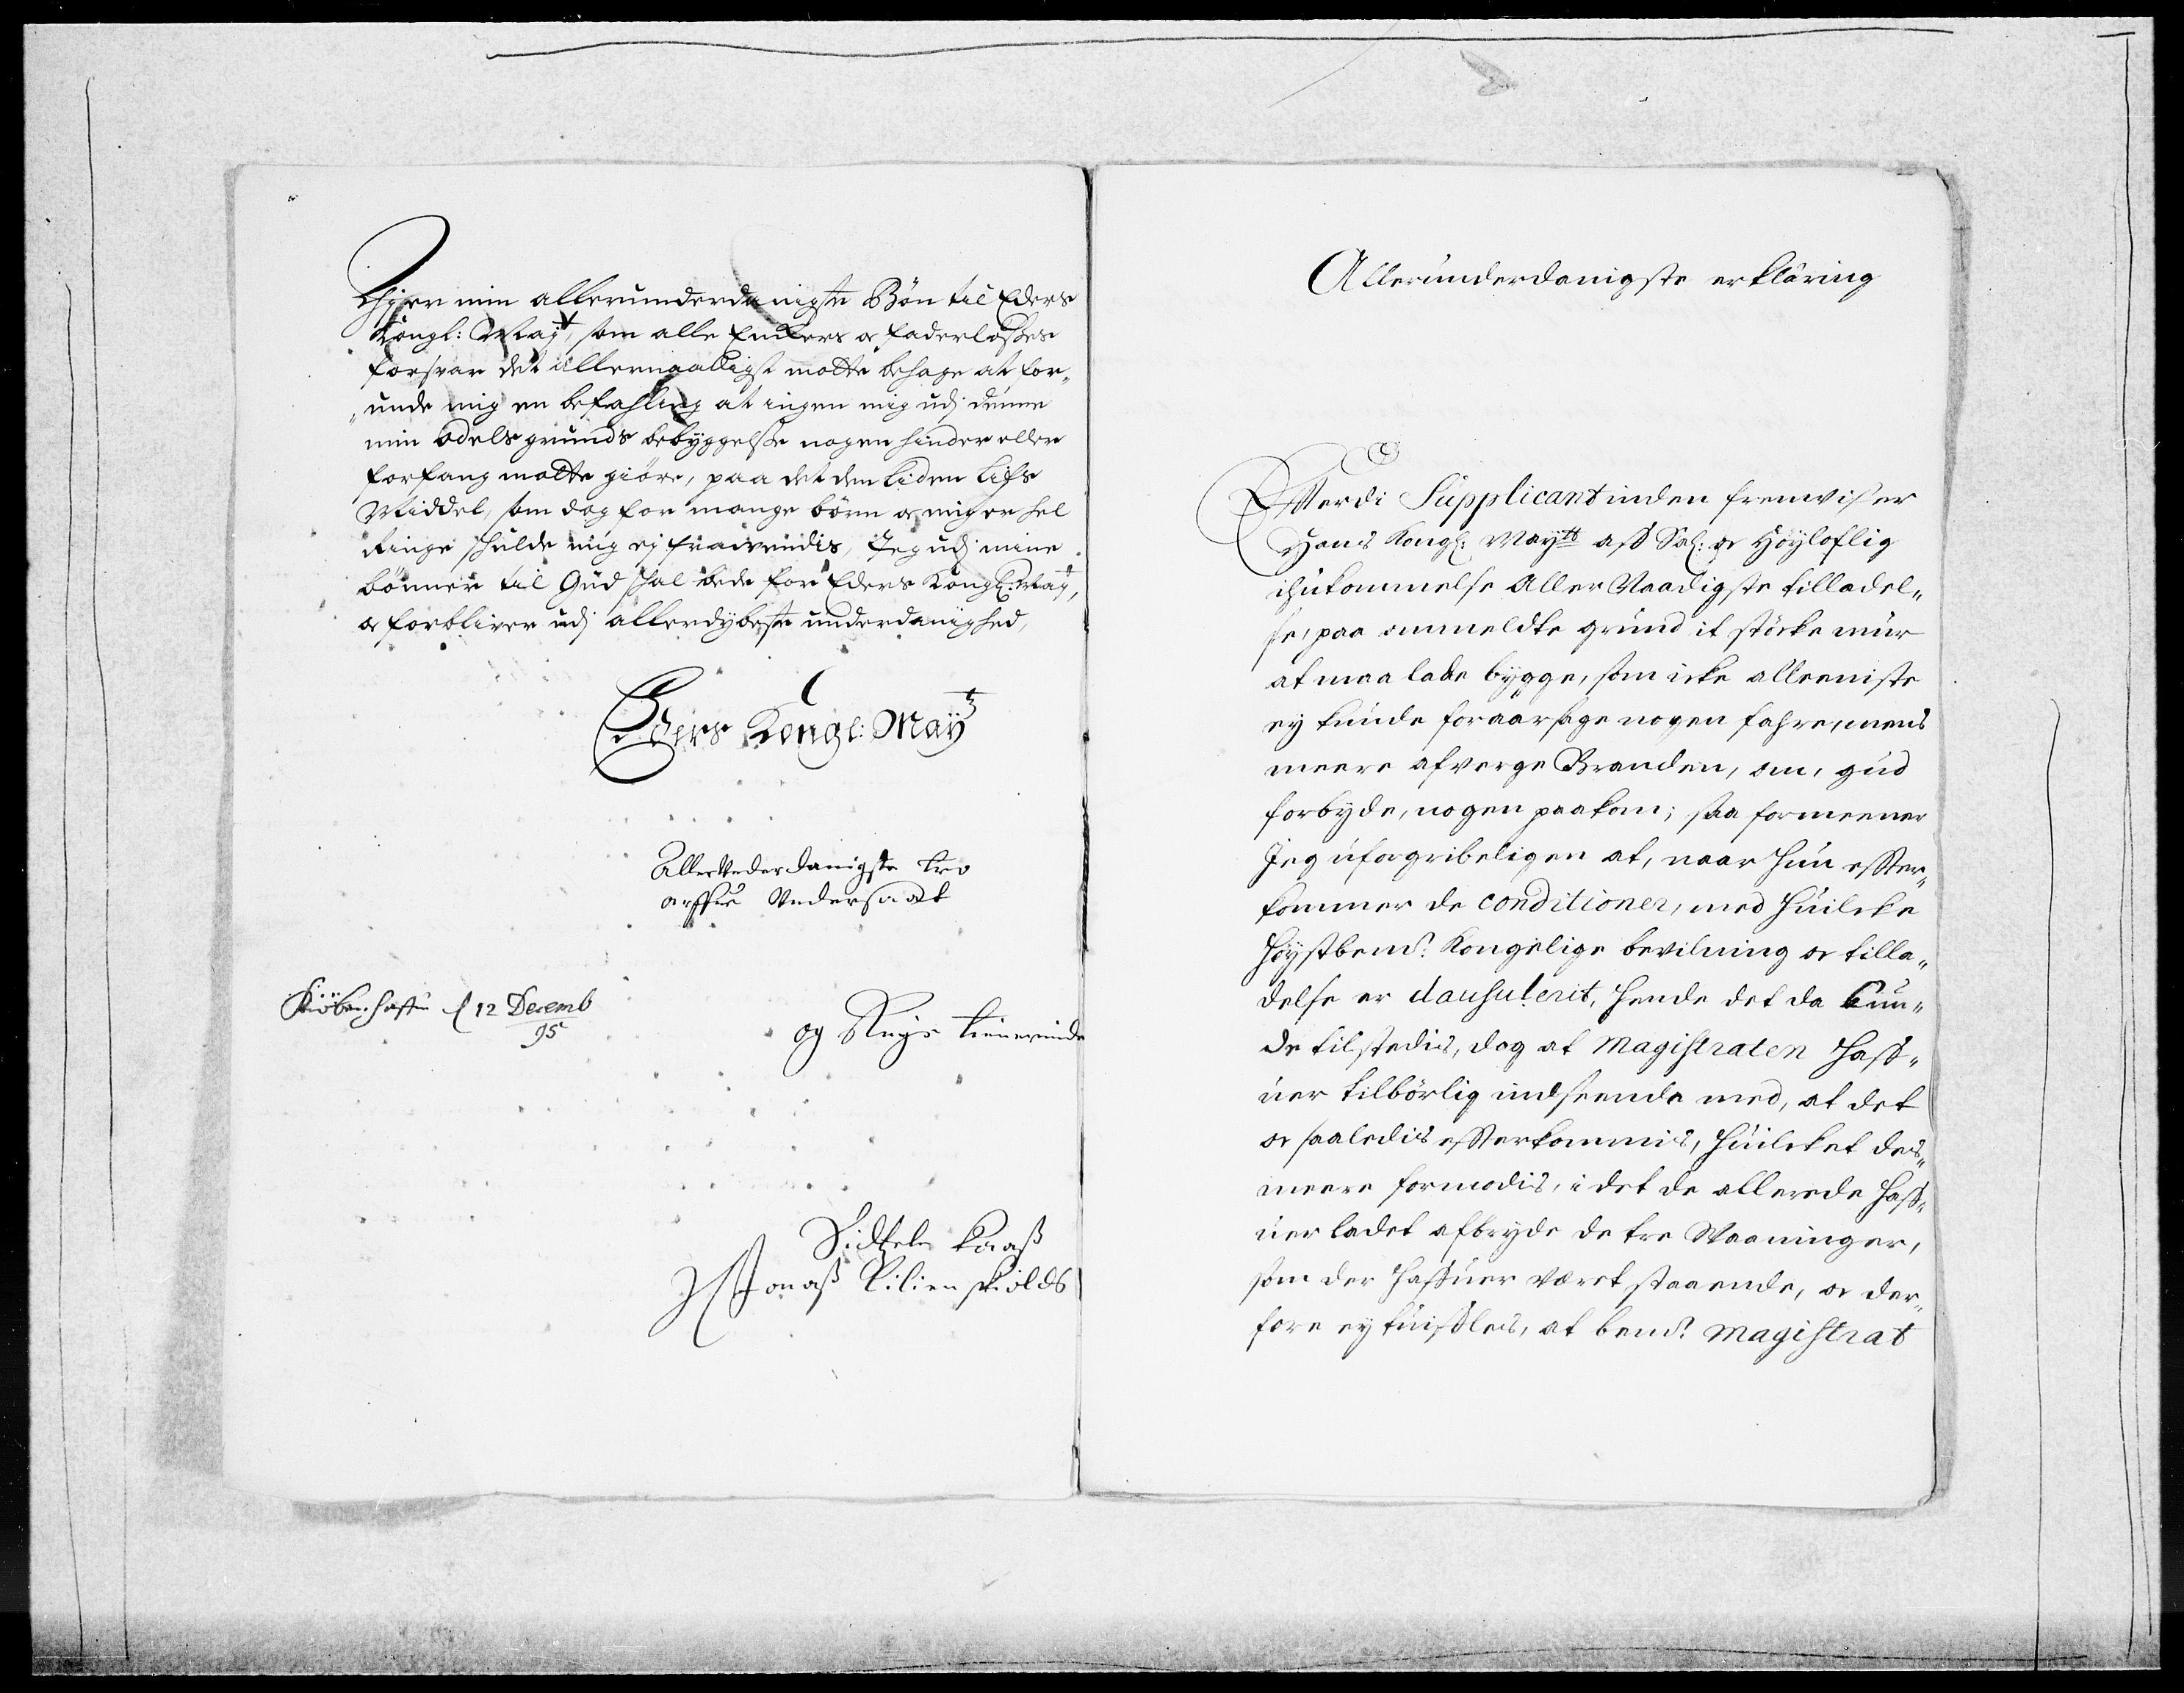 Thj er min allerunderdanigste Bön til Eders
Kongl: May^t, som alle Enkers oc faderlösses
forsvar det allernaadigst motte behage at for„
„unde mig en befahling at ingen mig udj denne
min odels grunds bebyggelsse nogen hinder eller
forfang motte giöre, paa det den liden lifs
Middel, som dog for mange börn oc mig er hel
Ringe skulde mig ej fravendis, Jeg udj mine
bönner til Gud skal bede for Eders Kongl: May^t,
oc forbliver udj allerdybeste underdanighed,
Eders Kongl: May^tz
AllerUnderdanigste tro
arffue Undersaatt
Kiöbenhaffn d 12 Decemb
95
og Ringe tienerinde
Sidtzele Kaaß
Jonaß Lilienskiolds
Allerunderdanigste erklæring
Efterdi Supplicantinden fremviser
Hans Kongl: May^ts aff Sal: oc Höyloflig
ihukommelse Aller Naadigste tilladel„
se, paa ommeldte grund it störke muur
at maa lade bygge, som icke alleeniste
ey kunde foraarsage nogen fahre, mens
meere afverge Branden, om, gud
forbyde, nogen paakom; saa formeener
Jeg uforgribeligen at, naar hun effter„
kommer de conditioner, med huilcke
höystbem^t: Kongelige bevilning oc tilla„
delse er clausulerit, hende det da kun„
de tilstedis, dog at Magistraten haff„
uer tilbörlig indseende med, at det
oc saaledis effterkommis, huilcket des„
meere formodis, i det de allerede haff„
uer ladet afbryde de tre Waaninger,
som der haffuer været staaende, oc der„
fore ey tuifles, at bem^te Magistrat